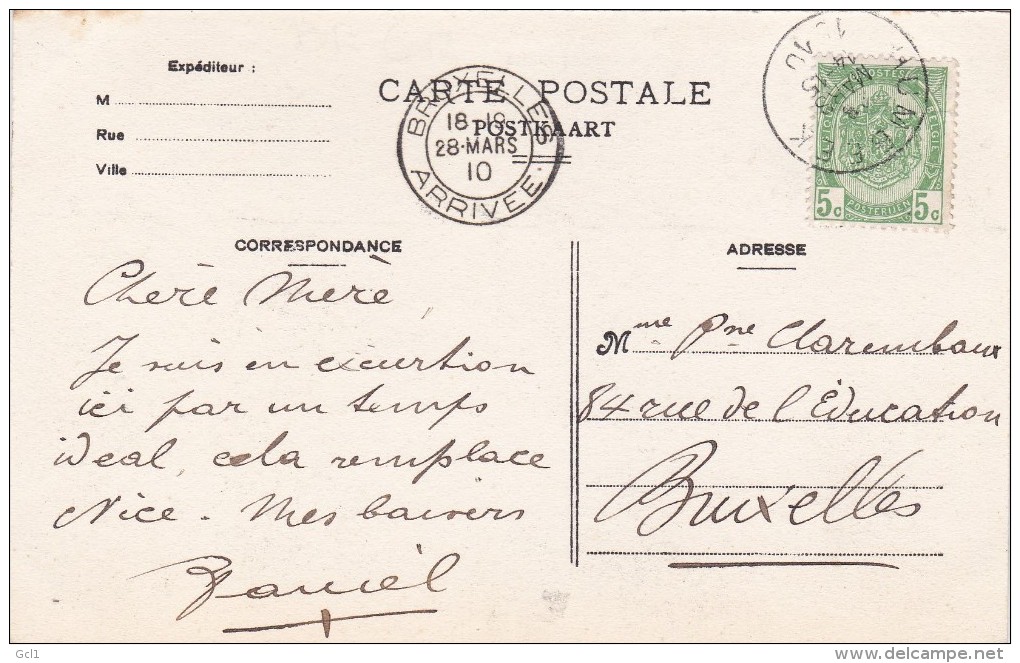 Expéditeur :
M
Rue
Ville
CARTE POSTALE
POSTKAART
BRUXELLES
18-19
28·MARS
10
ARRIVEE
POSTERIJEN
5c 5c
CORRESPONDANCE
ADRESSE
Chère Mère
Je suis en excurtion
ici par un temps
ideal, cela remplace
Nice. Mes baisers
Daniel
Mme Pne Clarembaux
84 rue de l'Éducation
Bruxelles
Gcl1
delcampe.net